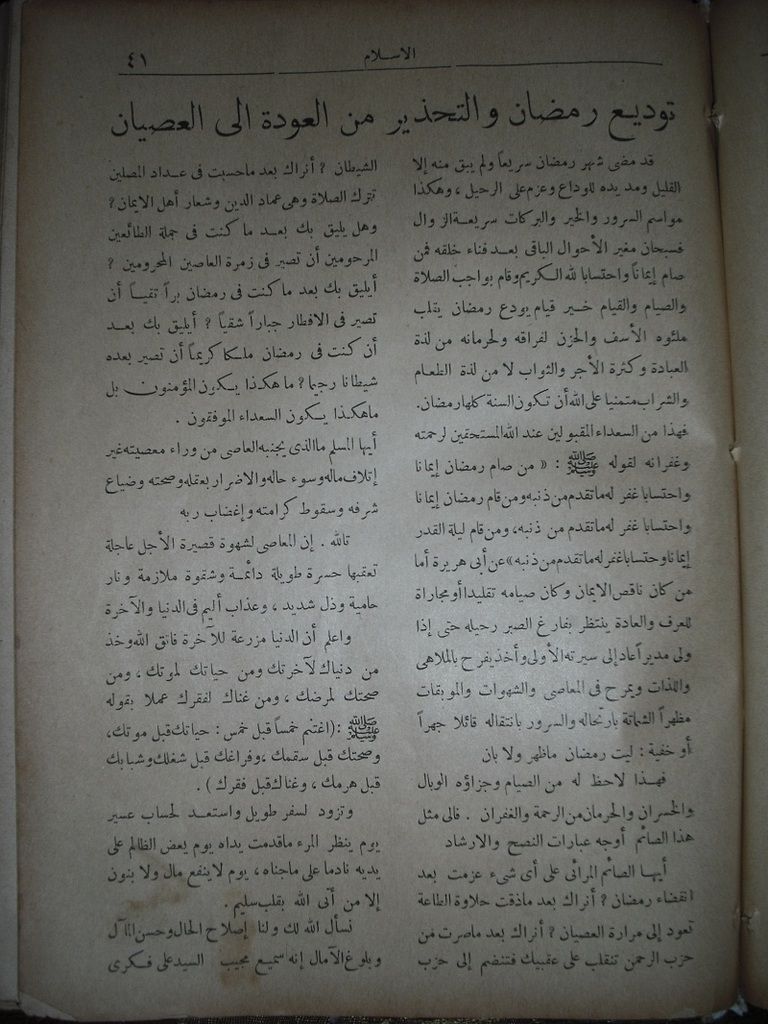 الاسلام
٤١
توديع رمضان والتحذير من العودة الى العصيان
قد مضى شهر رمضان سريعاً ولم يبق منه إلا
القليل ومد يده للوداع وعزم على الرحيل ، وهكذا
مواسم السرور والخير والبركات سريعة الزوال
فسبحان مغير الأحوال الباقى بعد فناء خلقه فمن
صام إيماناً واحتسابا لله الكريم وقام بواجب الصلاة
والصيام والقيام خير قيام يودع رمضان بقلب
ملئوه الأسف والحزن لفراقه ولحرمانه من لذة
العبادة وكثرة الأجر والثواب لا من لذة الطعام
والشراب متمنيا على الله أن تكون السنة كلها رمضان.
فهذا من السعداء المقبولين عند الله المستحقين لرحمته
وغفرانه لقوله ﷺ : « من صام رمضان إيمانا
واحتسابا غفر له ماتقدم من ذنبه ومن قام رمضان إيمانا
واحتسابا غفر له ماتقدم من ذنبه، ومن قام ليلة القدر
إيمانا وحتسابا غفر له ماتقدم من ذنبه» عن أبى هريرة أما
من كان ناقص الايمان وكان صيامه تقليدا أو مجاراة
للعرف والعادة ينتظر بفارغ الصبر رحيله حتى إذا
ولى مديراً عاد إلى سيرته الأولى وأخذ يفرح بالملاهى
واللذات ويمرح فى المعاصى والشهوات والموبقات
مظهراً الشماتة بارتحاله والسرور بانتقاله قائلا جهراً
أو خفية : ليت رمضان ماظهر ولا بان
فهذا لاحظ له من الصيام وجزاؤه الوبال
والخسران والحرمان من الرحمة والغفران . فالى مثل
هذا الصائم أوجه عبارات النصح والارشاد
أيها الصائم المرائى على أى شىء عزمت بعد
انقضاء رمضان ? أتراك بعد ماذقت حلاوة الطاعة
تعود إلى مرارة العصيان ? أتراك بعد ماصرت من
حزب الرحمن تنقلب على عقبيك فتنضم إلى حزب
الشيطان ? أتراك بعد ماحسبت فى عداد المصلين
تترك الصلاة وهى عماد الدين وشعار أهل الايمان ?
وهل يليق بك بعد ما كنت فى جملة الطائعين
المرحومين أن تصير فى زمرة العاصين المحرومين ?
أيليق بك بعد ما كنت فى رمضان براً تقياً أن
تصير فى الافطار جباراً شقياً ? أيليق بك بعد
أن كنت فى رمضان ملكا كريماً أن تصير بعده
شيطانا رجيما ? ما هكذا يكون المؤمنون بل
ماهكذا يكون السعداء الموفقون .
أيها المسلم ماالذى يجنيه العاصى من وراء معصيته غير
إتلاف ماله وسوء حاله والاضرار بعقله وصحته وضياع
شرفه وسقوط كرامته وإغضاب ربه
تالله . إن المعاصى لشهوة قصيرة الأجل عاجلة
تعقبها حسرة طويلة دائمة وشقوة ملازمة ونار
حامية وذل شديد ، وعذاب أليم فى الدنيا والآخرة
واعلم أن الدنيا مزرعة للآخرة فاتق الله وخذ
من دنياك لآخرتك ومن حياتك لموتك ، ومن
صحتك لمرضك ، ومن غناك لفقرك عملا بقوله
ﷺ : (اغتنم خمساً قبل خمس : حياتك قبل موتك،
وصحتك قبل سقمك ، وفراغك قبل شغلك وشبابك
قبل هرمك ، وغناك قبل فقرك ) .
وتزود لسفر طويل واستعد لحساب عسير
يوم ينظر المرء ماقدمت يداه يوم يعض الظالم على
يديه نادما على ماجناه ، يوم لاينفع مال ولا بنون
إلا من أتى الله بقلب سليم .
نسأل الله لك ولنا إصلاح الحال وحسن المآل
وبلوغ الآمال إنه سميع مجيب السيد على فكرى